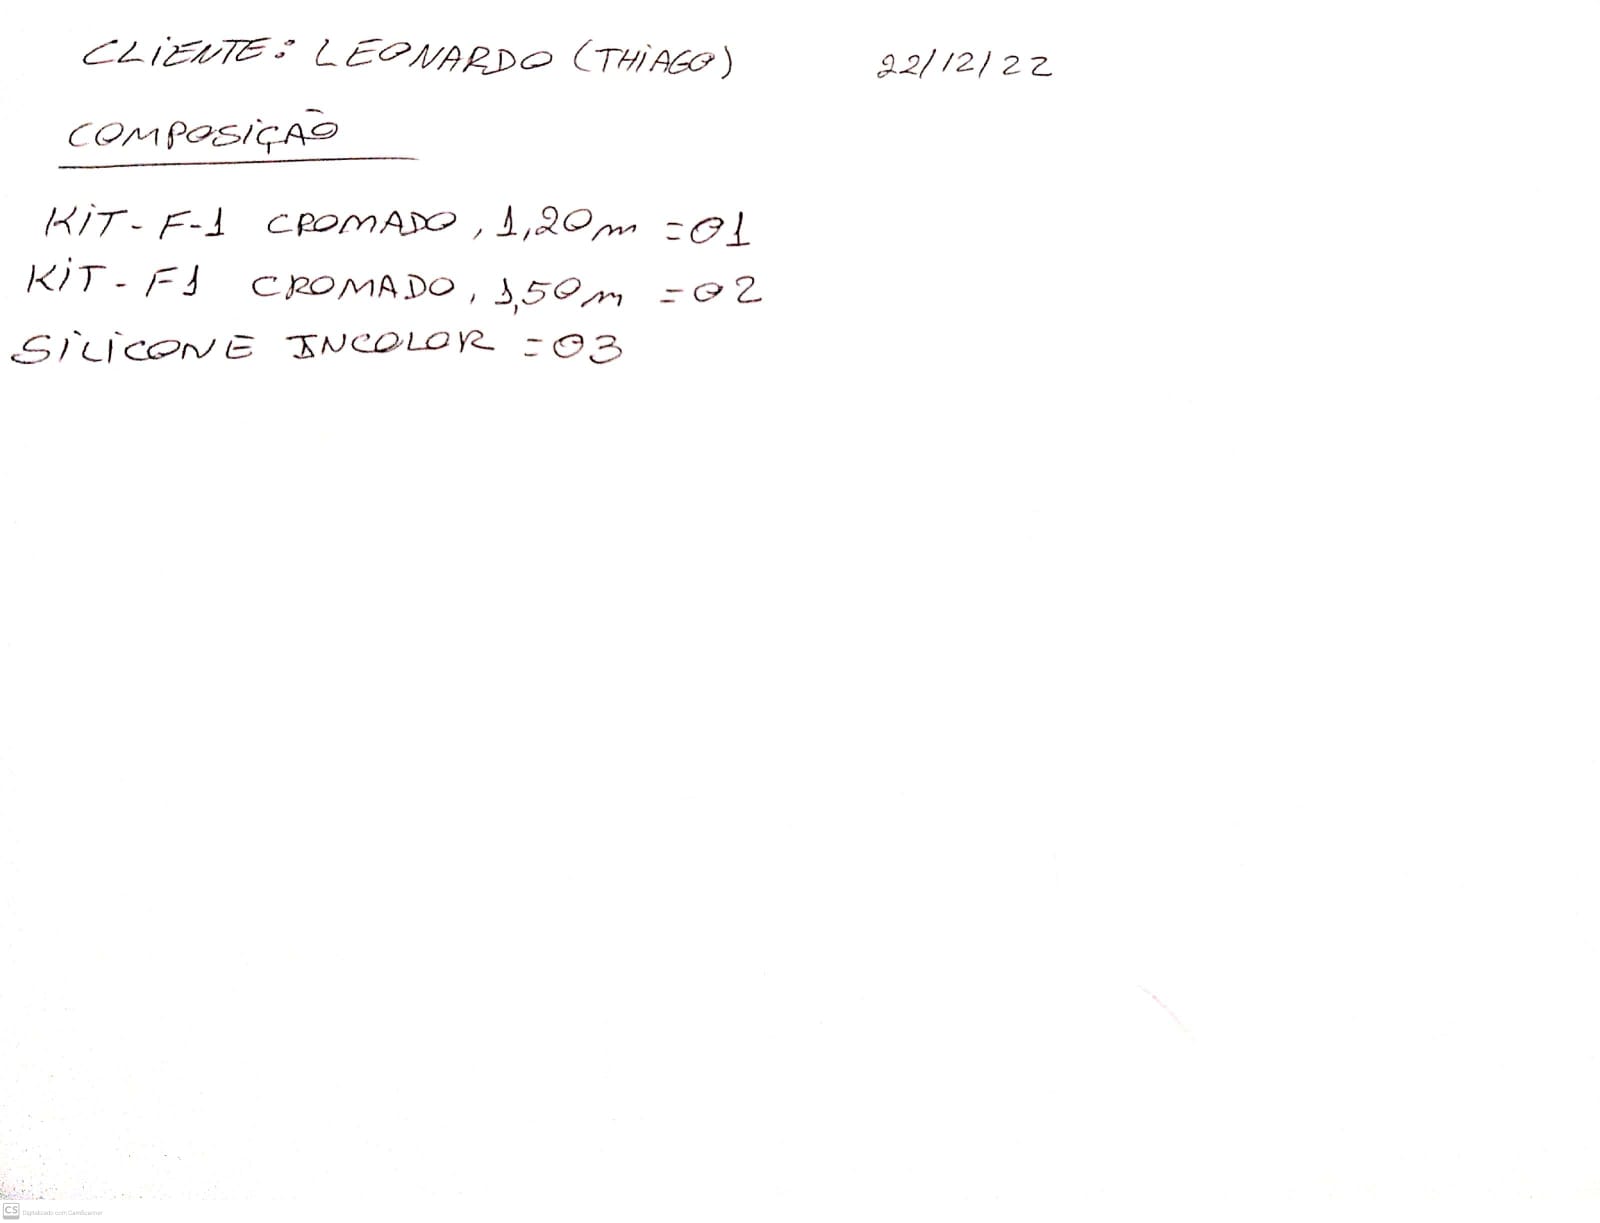 CLIENTE: LEONARDO (THIAGO) 22/12/22
COMPOSIÇÃO
KIT - F-1 CROMADO, 1,20m = 01
KIT - F1 CROMADO, 1,50m = 02
SILICONE INCOLOR = 03
CS Digitalizado com CamScanner